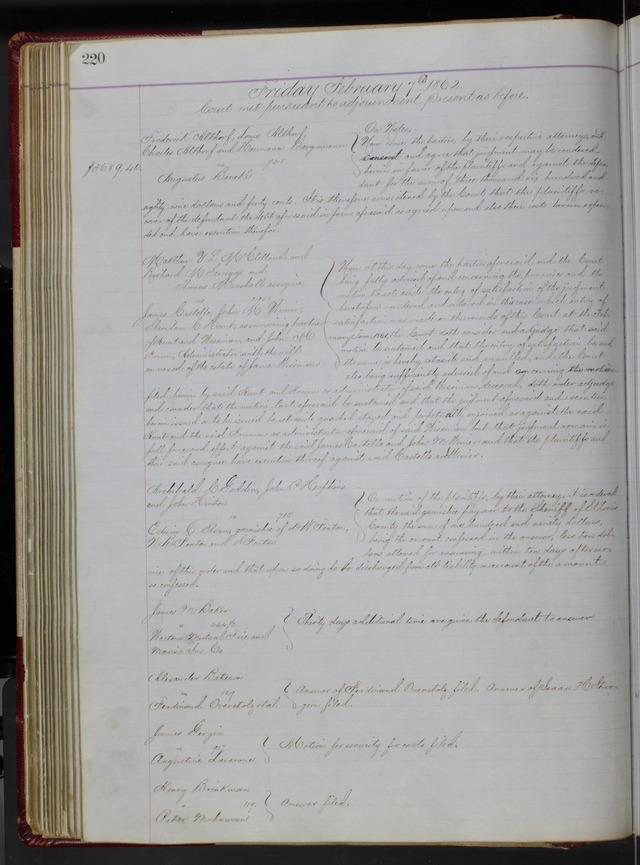 220
Friday February 7th 1862.
Court met pursuant to adjournment, present as before.
Frederick Althof, Louis Althof,
Charles Althof and Hermann Bergmann
vs
Augustus Beneke
$3689.40
On Notes.
Now come the parties, by their respective attorneys, and
consent and agree that judgment may be rendered
herein in favor of the plaintiffs and against the defen-
dant for the sum of three thousand six hundred and
eighty nine dollars and forty cents. It is therefore considered by the Court that the plaintiffs re-
cover of the defendant the debt aforesaid in form aforesaid as agreed upon and also their costs herein expen-
ded and have execution therefor.
Matthew McClelland, and
Richard M Scruggs and
Marshall assignee
vs
James Costello, John M Wimer,
Hunt, surviving partner
of Hunt and and John M
Administrator with the will
annexed of the estate of
Now at this day come the parties aforesaid and the Court
being fully advised of and concerning the premises and the
motion to set aside the entry of satisfaction of the judgment
heretofore rendered and entered in this case which entry of
satisfaction was made on the records of this Court at the Feb-
ruary Term 1861, the Court doth consider and adjudge that said
motion be sustained and that the entry of satisfaction be and
the same is hereby set aside and annulled, and the Court
also being sufficiently advised of and concerning the motion
filed herein by said Hunt and as administrator of said deceased, doth order adjudge
and consider that the motion last aforesaid be sustained and that the judgment aforesaid and execution
herein issued or to be issued be set aside quashed stayed and perpetually enjoined as against the said
Hunt and the said as administrator aforesaid of said but that judgment remain in
full force and effect against the said James Costello and John M Wimer and that the plaintiffs and
their said assignee have execution thereof against said Costello and Wimer.
Archibald C Goddin, John P Hopkins
and John Hinton
vs
Edwin C Sloan, garnishee of W Fenton,
W B Fenton and Fenton
On motion of the plaintiffs, by their attorney, it is ordered
that the said garnishee pay over to the Sheriff of St Louis
County the sum of one hundred and ninety dollars,
being the amount confessed in the answer, less ten dol-
lars allowed for answering, within ten days after ser-
vice of this order and that upon so doing he be discharged from all liability on account of the amount
so confessed.
James M Baker
vs
Western Mutual Fire and
Marine Ins Co
Thirty days additional time are given the defendant to answer
Alexander Bateson
vs
Ferdinand Overstolz et al
Answer of Ferdinand Overstolz filed. Answer of Isaac H Stur-
geon filed.
James
vs
Augustine
Motion for security for costs filed.
Henry Brinkman
vs
Peter
Answer filed.